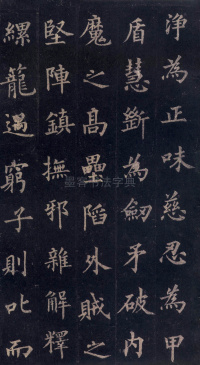 淨為正味慈忍為甲
盾慧斷為劒矛破内
魔之高壘陷外賊之
堅陣鎮撫邪雜解釋
縲籠遇窮子則叱而
墨客书法字典